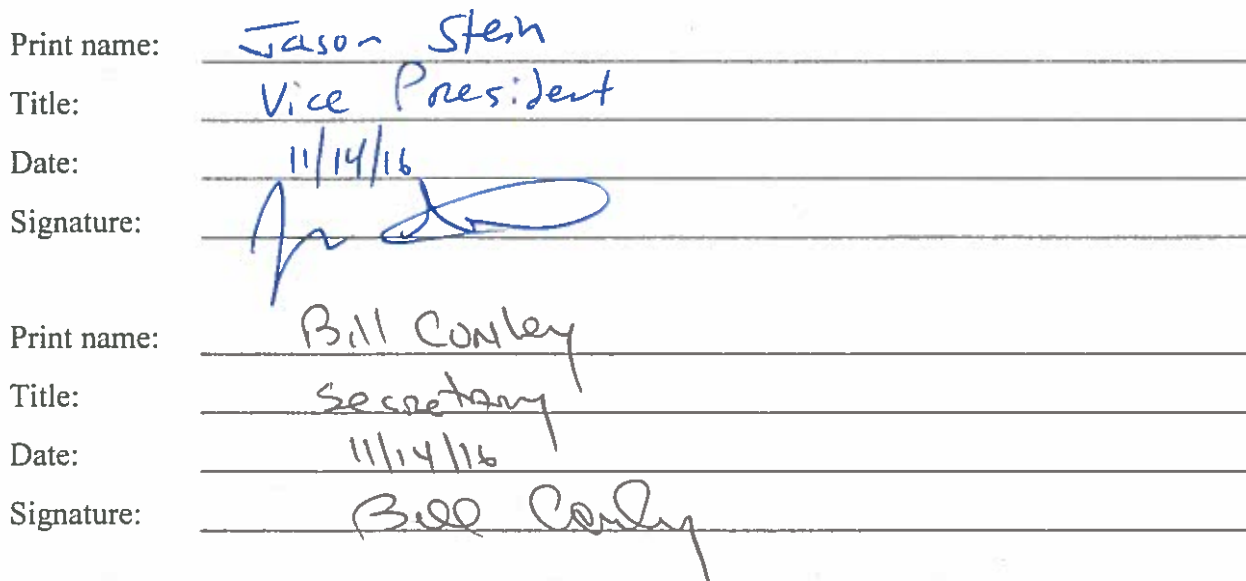 Print name: Jason Stein
Title: Vice President
Date: 11/14/16
Signature:
Print name: Bill Conley
Title: Secretary
Date: 11/14/16
Signature: Bill Conley